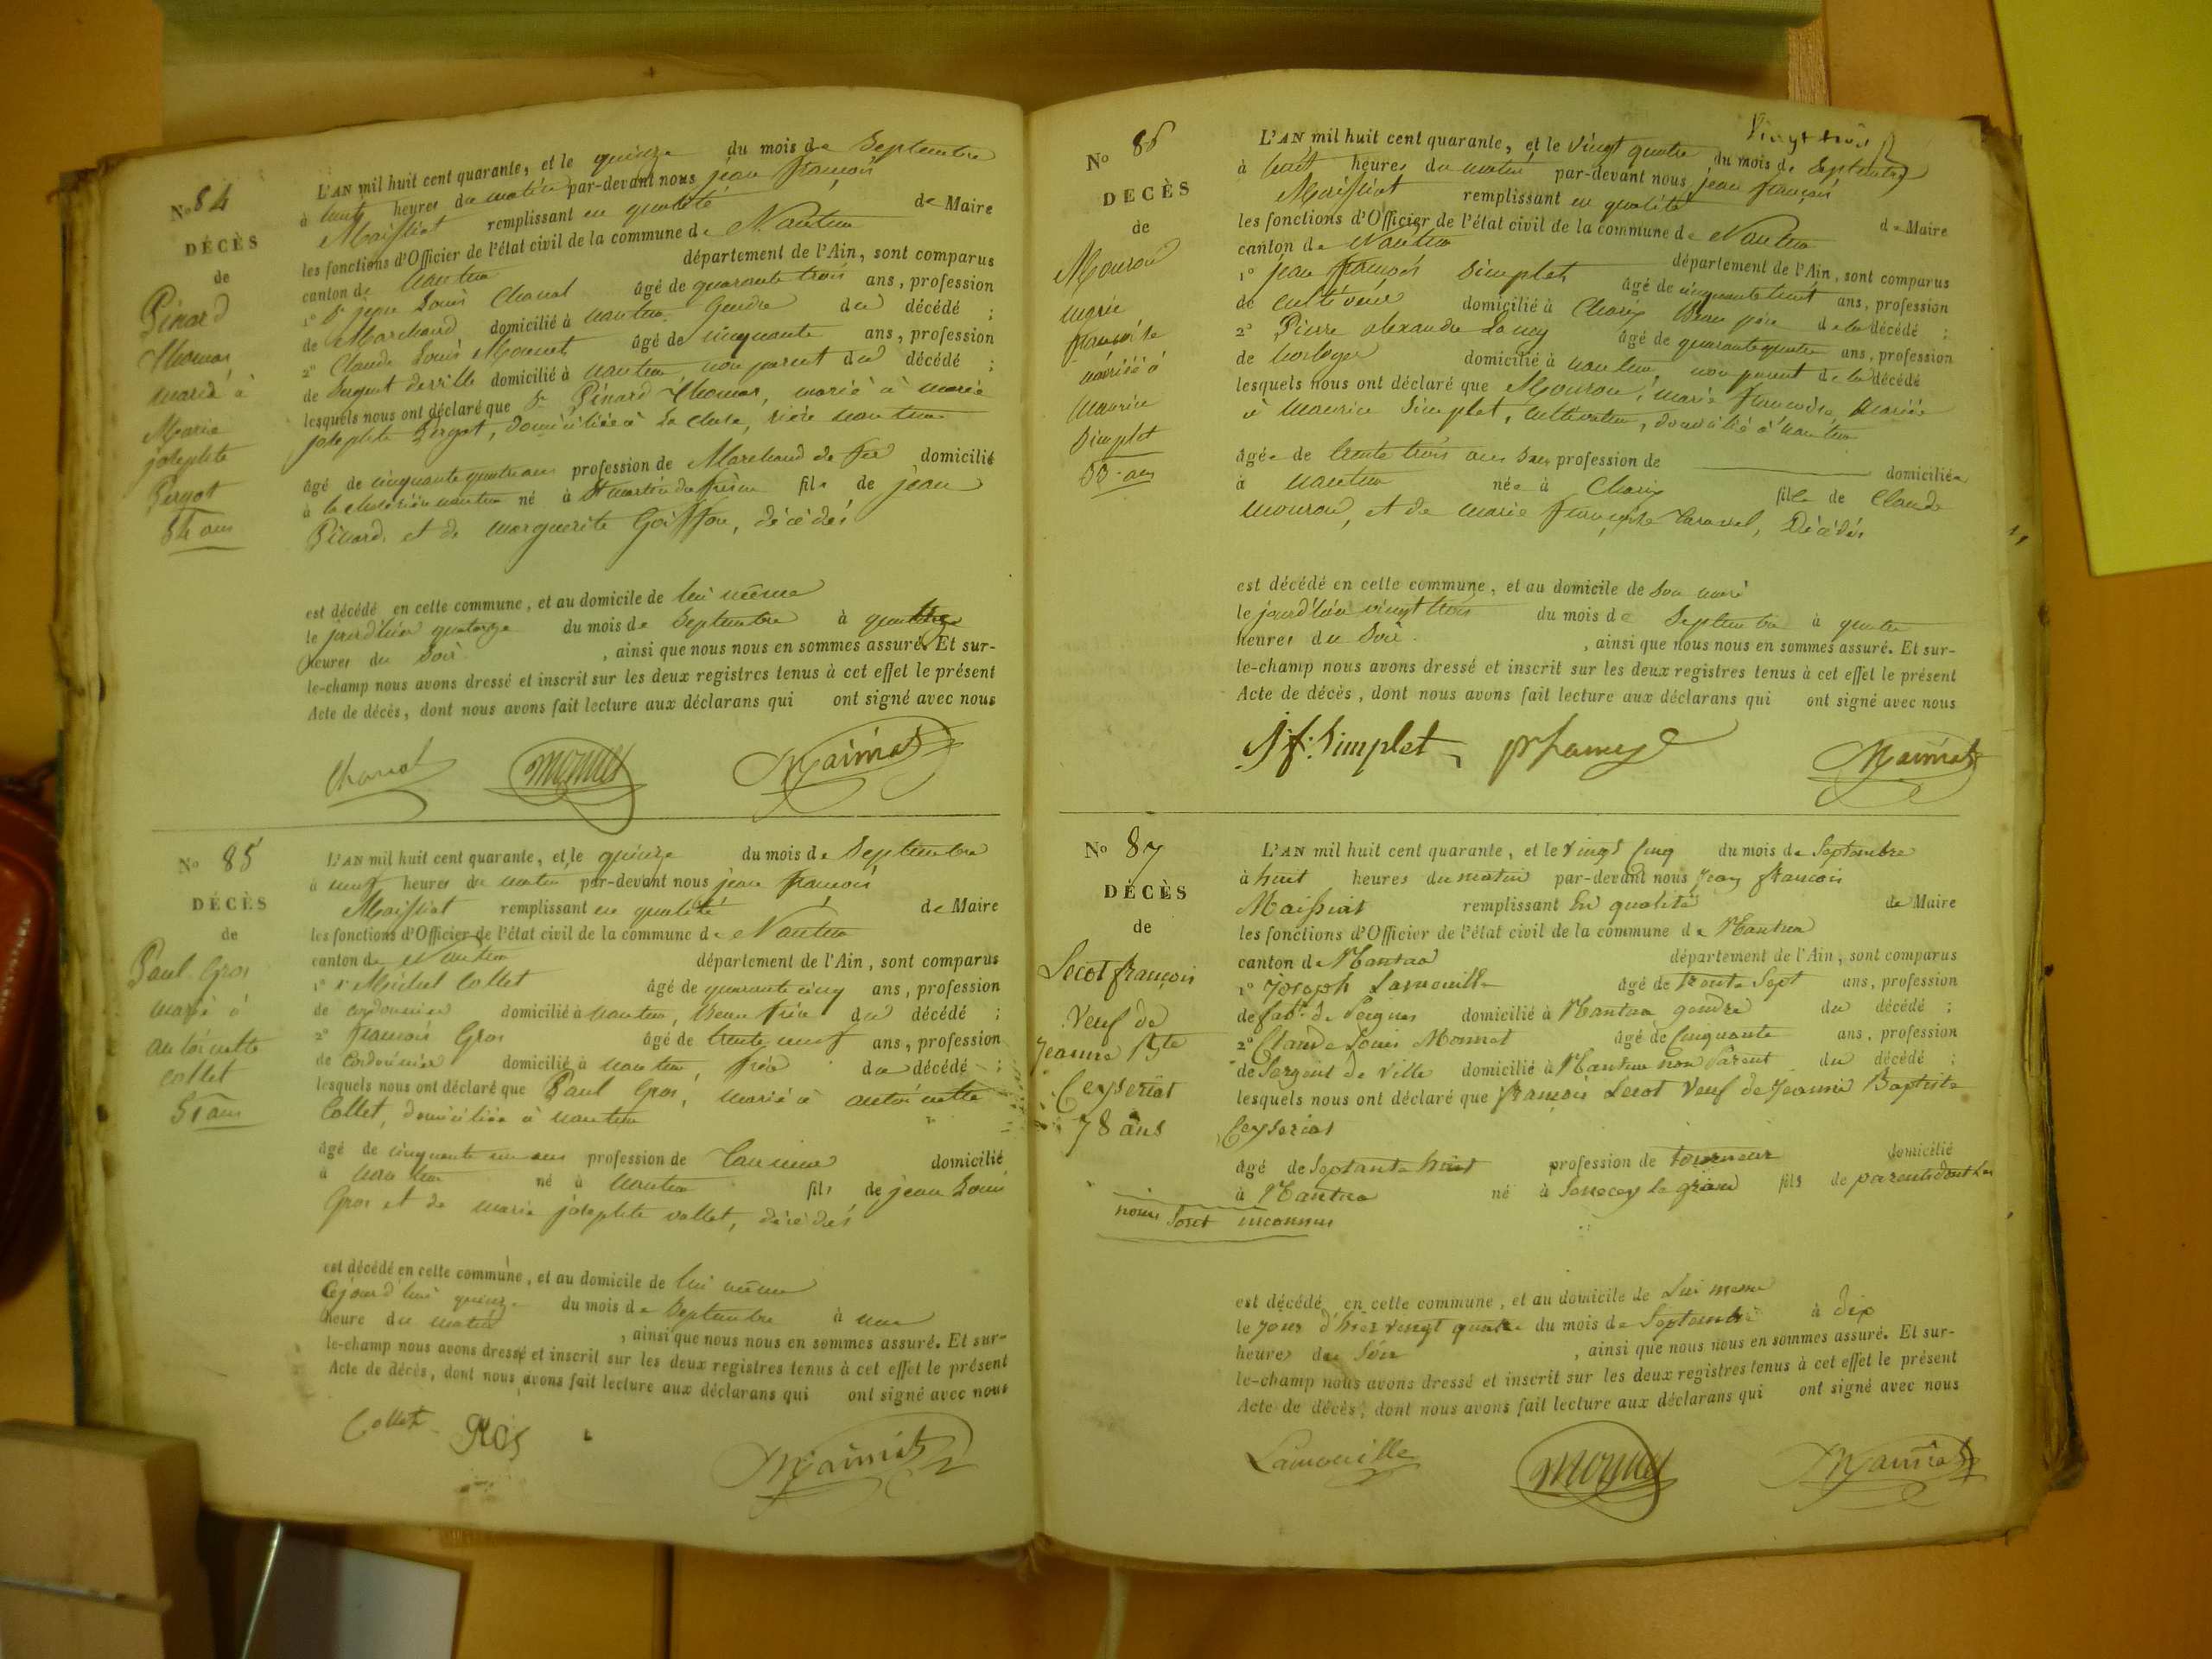 No 84
DÉCÈS
de
Pinard
Thomas
marié à
Marie
josephte
Pergot
54 ans
L'AN mil huit cent quarante, et le quinze du mois de Septembre
à huit heures du matin par-devant nous jean françois
Maissiat remplissant en qualité de Maire
les fonctions d'Officier de l'état civil de la commune de Nantua
canton de Nantua département de l'Ain, sont comparus
1° Sr jean Louis Chanal âgé de quarante trois ans, profession
de Marchand domicilié à nantua Gendre du décédé ;
2° Claude Louis Monnet âgé de cinquante ans, profession
de Sergent de ville domicilié à nantua, non parent du décédé ;
lesquels nous ont déclaré que Sr Pinard Thomas, marié à marie
josephte Pergot, domiciliée à La Cluse, rière nantua
âgé de cinquante quatre ans profession de Marchand de fer domicilié
à la cluse rière nantua né à St martin du frêne fils de jean
Pinard et de marguerite Goiffon, décédés
est décédé en cette commune, et au domicile de lui même
le jour d'hier quatorze du mois de Septembre à
heures du soir , ainsi que nous nous en sommes assuré. Et sur-
le-champ nous avons dressé et inscrit sur les deux registres tenus à cet effet le présent
Acte de décès, dont nous avons fait lecture aux déclarans qui ont signé avec nous
Chanal Monnet Maissiat
No 85
DÉCÈS
de
Paul Gros
marié à
antoinette
collet
51 ans
L'AN mil huit cent quarante, et le quinze du mois de Septembre
à neuf heures du matin par-devant nous jean françois
Maissiat remplissant en qualité de Maire
les fonctions d'Officier de l'état civil de la commune de Nantua
canton de Nantua département de l'Ain, sont comparus
1° Michel Collet âgé de quarante cinq ans, profession
de cordonnier domicilié à nantua, beau frère du décédé ;
2° françois Gros âgé de trente neuf ans, profession
de Cordonnier domicilié à nantua, frère du décédé ;
lesquels nous ont déclaré que Paul Gros, marié à antoinette
Collet, domiciliée à nantua
âgé de cinquante un ans profession de Tanneur domicilié
à nantua né à nantua fils de jean Louis
Gros et de marie josephte vallet, décédés
est décédé en cette commune, et au domicile de lui même
Cejourd'hui quinze du mois de Septembre à une
heure du matin , ainsi que nous nous en sommes assuré. Et sur-
le-champ nous avons dressé et inscrit sur les deux registres tenus à cet effet le présent
Acte de décès, dont nous avons fait lecture aux déclarans qui ont signé avec nous
Collet Gros Maissiat
No 86
DECÈS
de
Mouron
marie
françoise
mariée à
Maurice
Simplet
33 ans
Vingt trois
L'AN mil huit cent quarante, et le vingt quatre du mois de Septembre
à huit heures du matin par-devant nous jean françois
Maissiat remplissant en qualité de Maire
les fonctions d'Officier de l'état civil de la commune de Nantua
canton de Nantua département de l'Ain, sont comparus
1° jean françois Simplet âgé de cinquante huit ans, profession
de cultivateur domicilié à Charix Beau père de la décédé ;
2° Pierre alexandre Lamy âgé de quarante quatre ans, profession
de horloger domicilié à nantua, non parent de la décédé
lesquels nous ont déclaré que Mouron, marie françoise, mariée
à Maurice Simplet, cultivateur, domicilié à nantua
âgée de trente trois ans sans profession de domiciliée
à nantua née à Charix fille de Claude
mouron, et de marie françoise Décédés
est décédé en cette commune, et au domicile de son mari
le jour d'hier vingt trois du mois de Septembre à quatre
heures du soir , ainsi que nous nous en sommes assuré. Et sur-
le-champ nous avons dressé et inscrit sur les deux registres tenus à cet effet le présent
Acte de décès, dont nous avons fait lecture aux déclarans qui ont signé avec nous
J f. Simplet Maissiat
No 87
DÉCÈS
de
Lecot françois
Veuf de
Jeanne Bte
Ceyseriat
78 ans
L'AN mil huit cent quarante, et le vingt Cinq du mois de Septembre
à huit heures du matin par-devant nous Jean francois
Maissiat remplissant En qualité de Maire
les fonctions d'Officier de l'état civil de la commune de Nantua
canton de Nantua département de l'Ain, sont comparus
1° Joseph Lamouille âgé de trente Sept ans, profession
de fabt de Peignes domicilié à Nantua gendre du décédé ;
2° Claude Louis Monnet âgé de Cinquante ans, profession
de Sergent de Ville domicilié à Nantua non Parent du décédé ;
lesquels nous ont déclaré que françois Lecot Veuf de Jeanne Baptiste
Ceyseriat
âgé de Septante huit profession de tourneur domicilié
à Nantua né à Senecey le grand fils de parents dont les
noms Sont inconnus
est décédé en cette commune, et au domicile de Lui meme
le jour d'hier vingt quatre du mois de Septembre à dix
heures du Soir , ainsi que nous nous en sommes assuré. Et sur-
le-champ nous avons dressé et inscrit sur les deux registres tenus à cet effet le présent
Acte de décès, dont nous avons fait lecture aux déclarans qui ont signé avec nous
Lamouille Monnet Maissiat